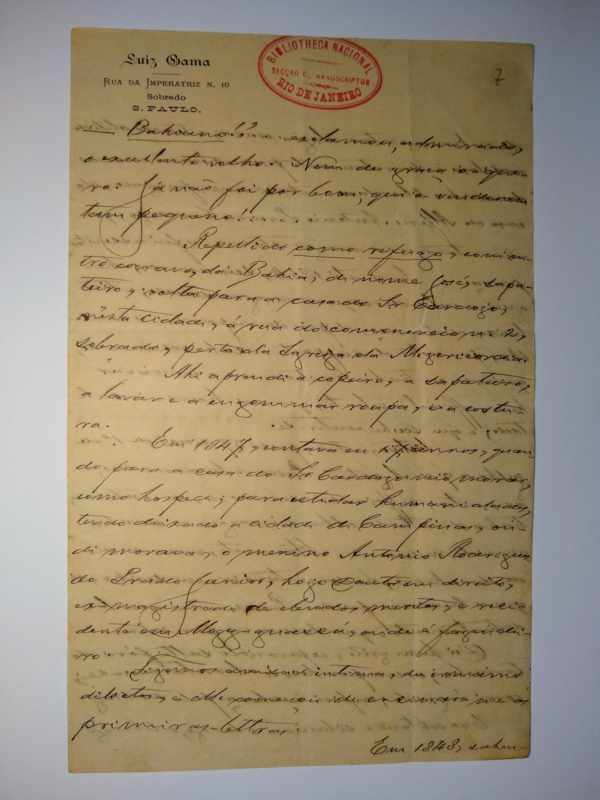 Luiz Gama
RUA DA IMPERATRIZ N. 10
Sobrado
S. PAULO.
BIBLIOTHECA NACIONAL
SECÇÃO DE MANUSCRIPTOS
RIO DE JANEIRO
7
— Bahiano!? exclamou, admirado,
o excellente velho. Nem de graça o que-
ro. Já não foi por bom, que o venderam
tam pequeno!!
Repellido como refugo, com ou-
tro escravo, da Bahia, de nome José, sapa-
teiro, voltei para a casa do Sr Cardozo,
n'esta cidade, á rua do commercio n: 2,
sobrado, perto da Igreja da Misericordia.
Ahi aprendi a copeiro, a sapateiro,
a lavar e a engommar roupa, e a costu-
ra.
Em 1847, contava eu 17 annos, quan-
do para a casa do Sr Cardozo veio morar,
como hospede, para estudar humanidades,
tendo deixado a cidade de Campinas, on-
de morava, o menino Antonio Rodrigues
do Prado Junior, hoje Doutor em direito,
ex-magistrado de elevados meritos, e resi-
dente em Mogy-guassú, onde é fazendei-
ro.
Fizemos amizade intima, de irmãos
dilectos, e elle começou de ensinar-me as
primeiras lettras.
Em 1848,